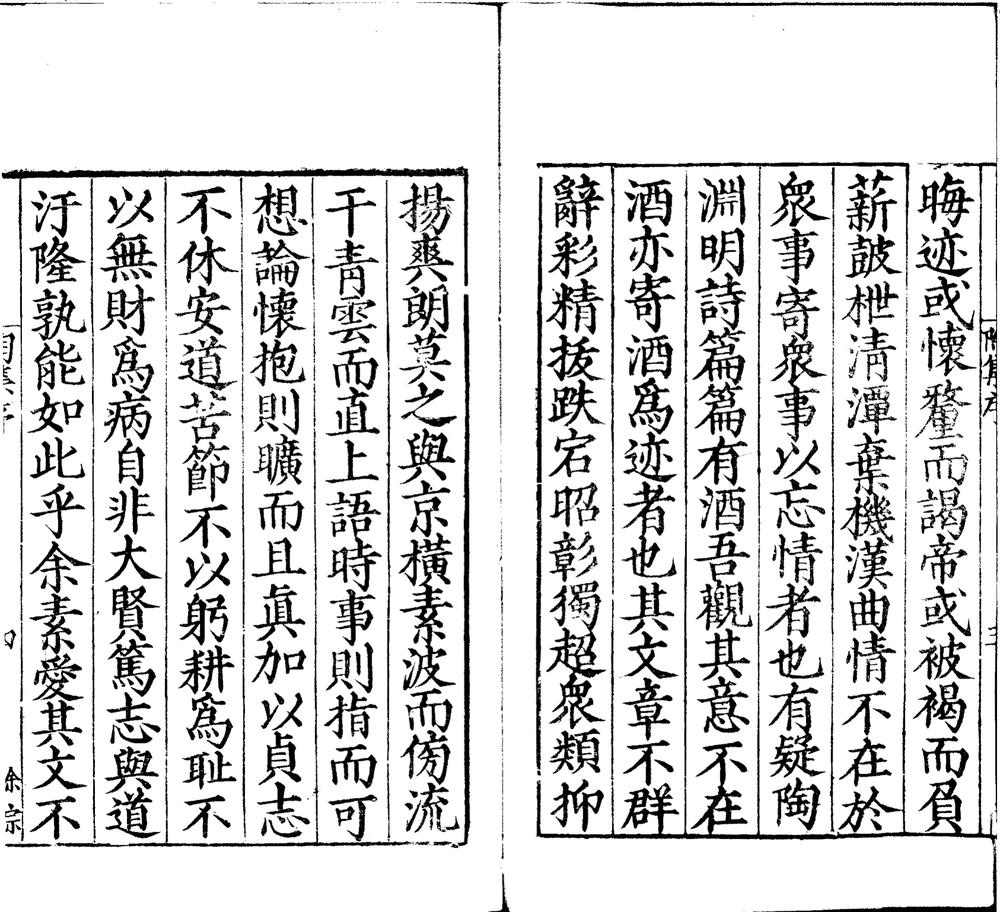 晦迹或懷釐而謁帝或被褐而負
薪鼓枻清潭棄機漢曲情不在於
衆事寄衆事以忘情者也有疑陶
淵明詩篇篇有酒吾觀其意不在
酒亦寄酒爲迹者也其文章不群
辭彩精拔跌宕昭彰獨超衆類抑
揚爽朗莫之與京橫素波而傍流
干青雲而直上語時事則指而可
想論懷抱則曠而且眞加以貞志
不休安道苦節不以躬耕爲耻不
以無財爲病自非大賢篤志與道
汙隆孰能如此乎余素愛其文不